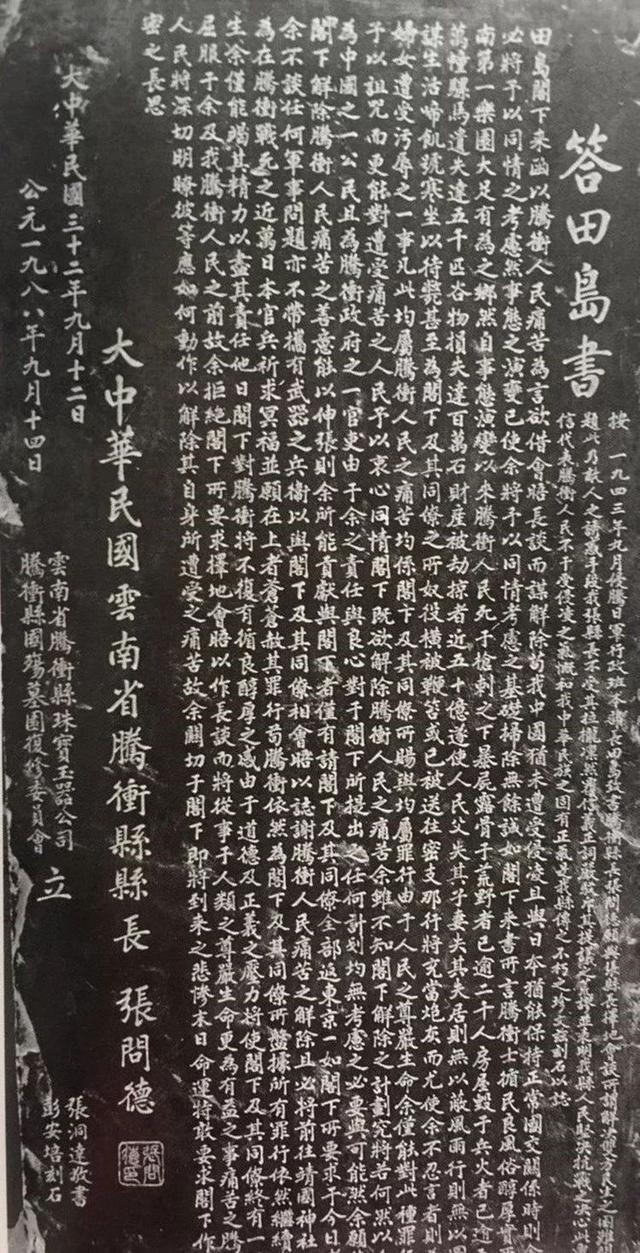 答田島書
按 一九四三年九月侵騰日軍行政班本部長田島致書騰衝縣長張問德約與張縣長擇地會談所謂解決雙方民生之困難
題此乃敵人之誘惑手段我張縣長不受其
信代表騰衝人民不甘受侵凌之氣慨和我中華民族之固有正氣是我縣傳之不朽之珍文爰刻石以誌
田島閣下來函以騰衝人民痛苦為言欲借會晤長談而謀解除苟我中國猶未遭受侵凌且與日本猶能保持正常國交關係時則
必將予以同情之考慮然事態之演變已使余將予以同情考慮之基礎掃除無餘誠如閣下來書所言騰衝士循民良風俗醇厚實
南第一樂園大足有為之鄉然自事態演變以來騰衝人民死于槍刺之下暴屍露骨于荒野者已逾二千人房屋毀于兵火者已逾
萬幢騾馬遺失達五千匹谷物損失達百萬石財産被劫掠者近五十億遂使人民父失其子妻失其夫居則無以蔽風雨行則無以
謀生活啼飢號寒坐以待斃甚至為閣下及其同僚之所奴役橫被鞭笞或已被送往密支那行將充當炮灰而尤使余不忍言者則
婦女遭受污辱之一事凡此均屬騰衝人民之痛苦均係閣下及其同僚所賜與均屬罪行由于人民之尊嚴生命余僅能對此種罪
予以詛咒而更能對遭受痛苦之人民予以衷心同情閣下既欲解除騰衝人民之痛苦余雖不知閣下解除之計劃究將若何然以
為中國之一公民且為騰衝政府之一官吏由于余之責任與良心對于閣下所提出之任何計劃均無考慮之必要與可能然余願
閣下解除騰衝人民痛苦之善意能以伸張則余所能貢獻與閣下者僅有請閣下及其同僚全部返東京一如閣下所要求于今日
余不談任何軍事問題亦不帶攜有武器之兵衛以與閣下及其同僚相會晤以誌謝騰衝人民痛苦之解除且必將前往靖國神社
為在騰衝戰死之近萬日本官兵祈求冥福並願在上者蒼蒼赦其罪行苟騰衝依然為閣下及其同僚所盤據所有罪行依然繼續
生余僅能竭其精力以盡其責任他日閣下對騰衝將不復有循良醇厚之感由于道德及正義之壓力將使閣下及其同僚終有一
屈服于余及我騰衝人民之前故余拒絕閣下所要求擇地會晤以作長談而將從事于人類之尊嚴生命更為有益之事痛苦之騰
人民將深切明瞭彼等應如何動作以解除其自身所遭受之痛苦故余關切于閣下即將到來之悲慘末日命運特敢要求閣下作
密之長思
大中華民國雲南省騰衝縣縣長 張問德
大中華民國三十二年九月十二日
公元一九八八年九月十四日
雲南省騰衝縣珠寶玉器公司
騰衝縣國殤墓園復修委員會
立
張洞達敬書
彭安培刻石